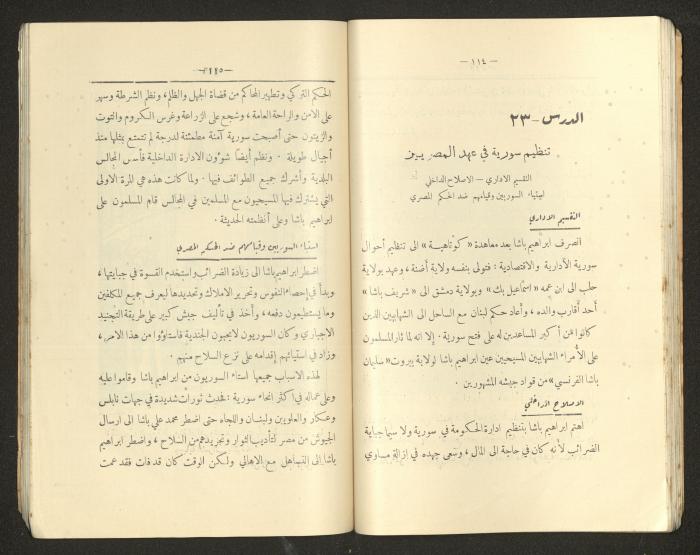 — ١١٤ —
الدرس - ٢٣
تنظيم سورية في عهد المصريين
التقسيم الاداري — الاصلاح الداخلي
استياء السوريين وقيامهم ضد الحكم المصري
التقسيم الاداري
انصرف ابراهيم باشا بعد معاهدة « كوتاهية » الى تنظيم أحوال
سورية الأدارية والاقتصادية : فتولى بنفسه ولاية أضنة ، وعهد بولاية
حلب الى ابن عمه « اسماعيل بك » وبولاية دمشق الى « شريف باشا »
أحد أقارب والده ، وأعاد حكم لبنان مع الساحل الى الشهابيين الذين
كانوا من أكبر المساعدين له على فتح سورية . إلا انه لما ثار المسلمون
على الأمراء الشهابيين المسيحيين عين ابراهيم باشا لولاية بيروت « سليمان
باشا الفرنسي » من قواد جيشه المشهورين .
الاصلاح الداخلي
اهتم ابراهيم باشا بتنظيم ادارة الحكومة في سورية ولا سيما جباية
الضرائب لأنه كان في حاجة الى المال ، وسعى جهده في ازالة مساوي
— ١١٥ —
الحكم التركي وتطهير المحاكم من قضاة الجهل والظلم ، ونظم الشرطة وسهر
على الامن والراحة العامة ، وشجع على الزراعة وغرس الكروم والتوت
والزيتون حتى أصبحت سورية آمنة مطمئنة لدرجة لم تتمتع بمثلها منذ
أجيال طويلة . ونظم أيضاً شؤون الادارة الداخلية فأسس المجالس
البلدية وأشرك جميع الطوائف فيها . ولما كانت هذه هي المرة الاولى
التي يشترك فيها المسيحيون مع المسلمين في المجالس قام المسلمون على
ابراهيم باشا وعلى أنظمته الحديثة .
استياء السوريين وقيامهم ضد الحكم المصري
اضطر ابراهيم باشا الى زيادة الضرائب واستخدم القسوة في جبايتها ،
وبدأ في إحصاء النفوس وتحرير الاملاك وتحديدها ليعرف جميع المكلفين
وما يستطيعون دفعه ، وأخذ في تأليف جيش كبير على طريقة التجنيد
الاجباري وكان السوريون لا يحبون الجندية فاستاؤوا من هذا الامر ،
وزاد في استيائهم إقدامه على نزع السلاح منهم .
لهذه الاسباب جميعها استاء السوريون من ابراهيم باشا وقاموا عليه
وعلى عماله في اكثر أنحاء سورية : فحدثت ثورات شديدة في جهات نابلس
وعكار والعلويين ولبنان واللجاه حتى اضطر محمد علي باشا الى ارسال
الجيوش من مصر لتأديب الثوار وتجريدهم من السلاح ، واضطر ابراهيم
باشا الى التساهل مع الاهالي ولكن الوقت كان قد فات فقد عمت